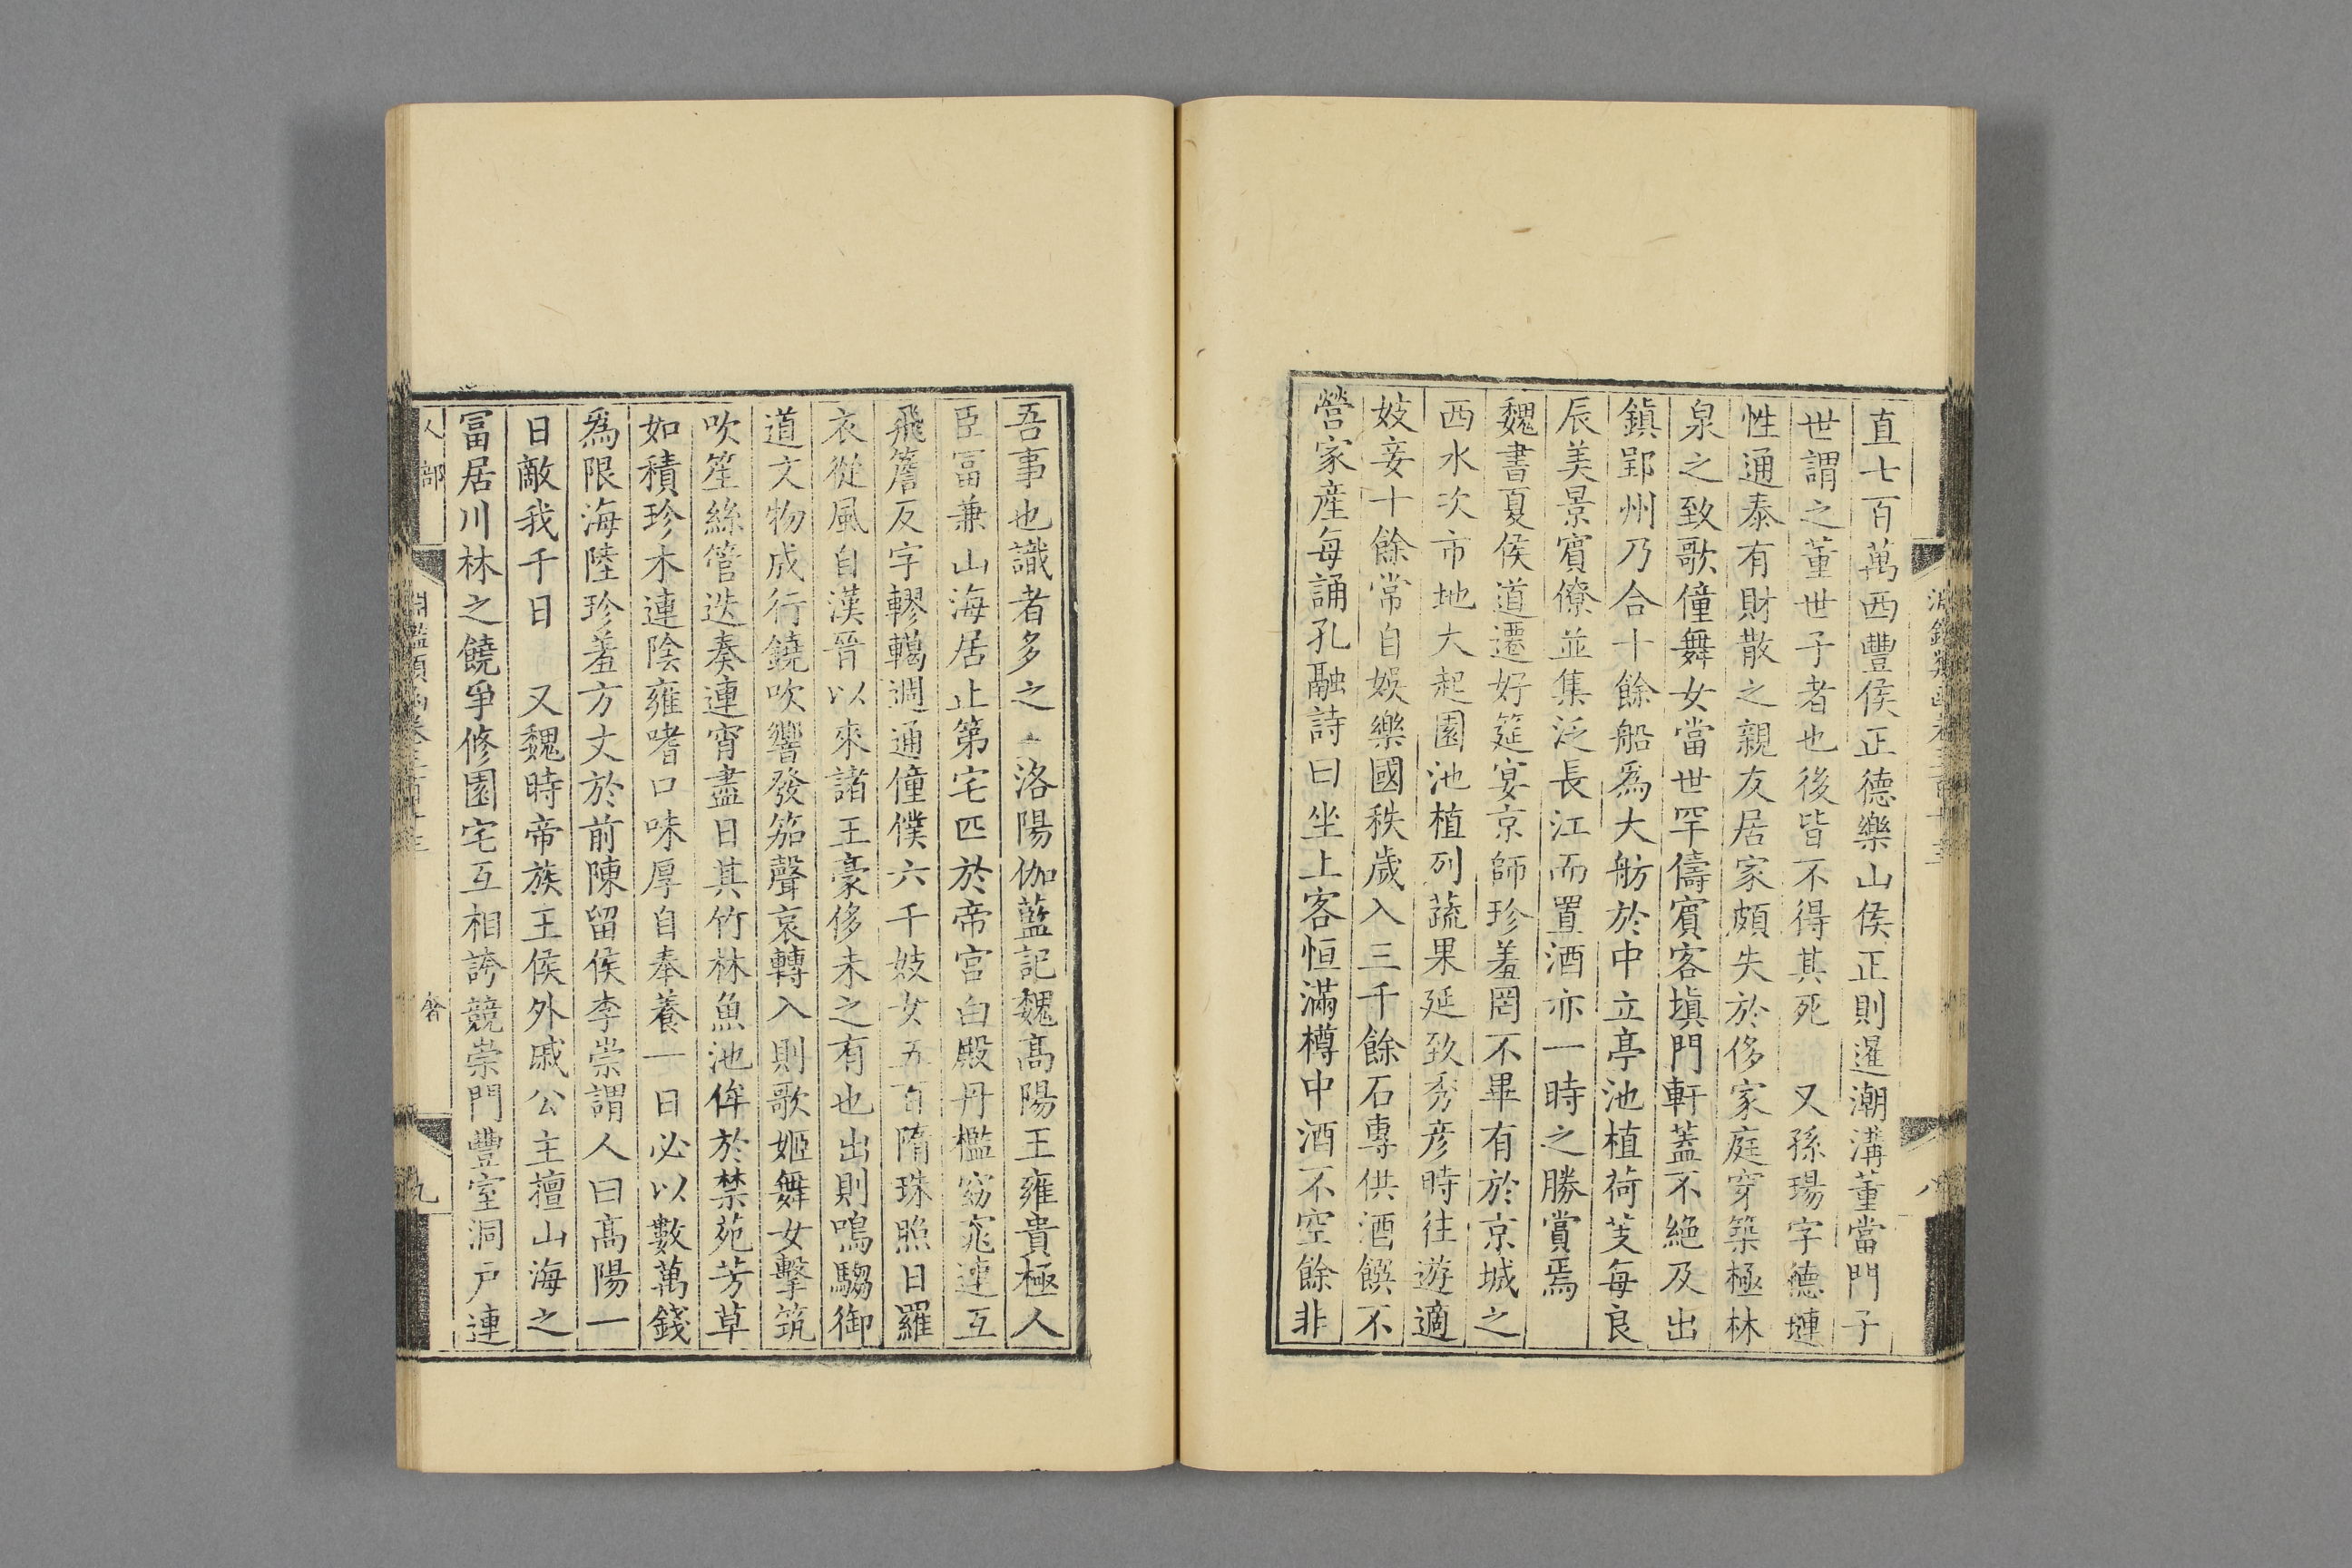 直七百萬西豐侯正德樂山侯正則暹潮溝董當門子
世謂之董世子者也後皆不得其死　又孫瑒字德璉
性通泰有財散之親友居家頗失於侈家庭穿築極林
泉之致歌僮舞女當世罕儔賓客塡門軒蓋不絶及出
鎭郢州乃合十餘船爲大舫於中立亭池植荷芰每良
辰美景賓僚並集泛長江而置酒亦一時之勝賞焉
魏書夏侯道遷好筵宴京師珍羞罔不畢有於京城之
西水次市地大起園池植列蔬果延致秀彦時往遊適
妓妾十餘常自娛樂國秩歲入三千餘石專供酒饌不
營家産每誦孔融詩曰坐上客恒滿樽中酒不空餘非
吾事也識者多之　洛陽伽藍記魏髙陽王雍貴極人
臣冨兼山海居止第宅匹於帝宮白殿丹檻窈窕連亙
飛簷反宇轇轕週通僮僕六千妓女五百隋珠照日羅
衣從風自漢晉以來諸王豪侈未之有也出則鳴騶御
道文物成行鐃吹響發笳聲哀轉入則歌姬舞女擊筑
吹笙絲管迭奏連宵盡日其竹林魚池侔於禁苑芳草
如積珍木連陰雍嗜口味厚自奉養一日必以數萬錢
爲限海陸珍羞方丈於前陳留侯李崇謂人曰髙陽一
日敵我千日　又魏時帝族王侯外戚公主擅山海之
冨居川林之饒爭修園宅互相誇競崇門豐室洞戸連
人部
奢
九